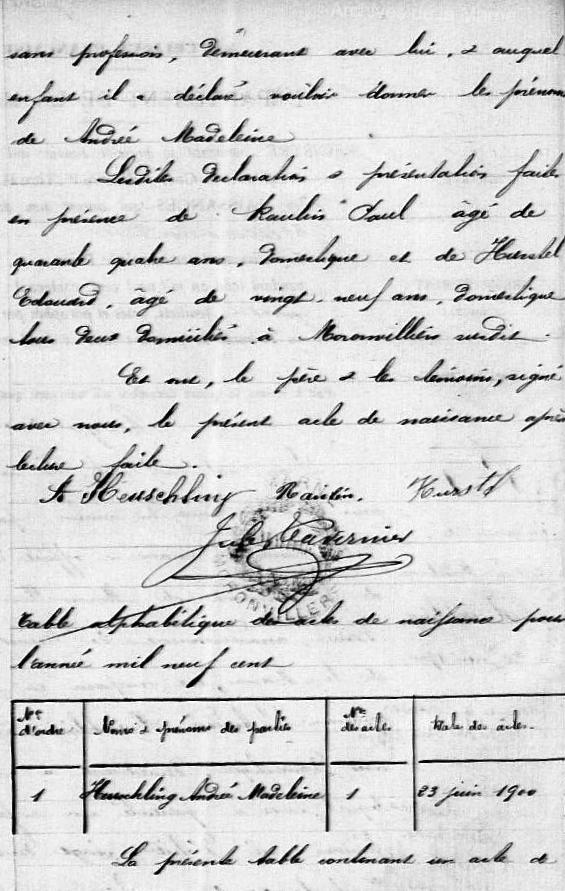 sans profession, demeurant avec lui, & auquel
enfant il a déclaré vouloir donner les prénoms
de André Madeleine
Lesdites déclaration & présentation faites
en présence de Raulin Paul âgé de
quarante quatre ans, domestique et de Hurstel
Edouard, âgé de vingt-neuf ans, domestique
tous deux domiciliés à Moronvilliers susdit.
Et ont, le père & les témoins, signé
avec nous, le présent acte de naissance après
lecture faite.
A Heuschling Raulin. Hurstel
Jules Tavernier
Table alphabétique des actes de naissance pour
l'année mil neuf cent
Nos d'ordre Noms & prénoms des parties Nos des actes Date des actes.
1 Heuschling André Madeleine 1 23 juin 1900
La présente table contenant un acte de